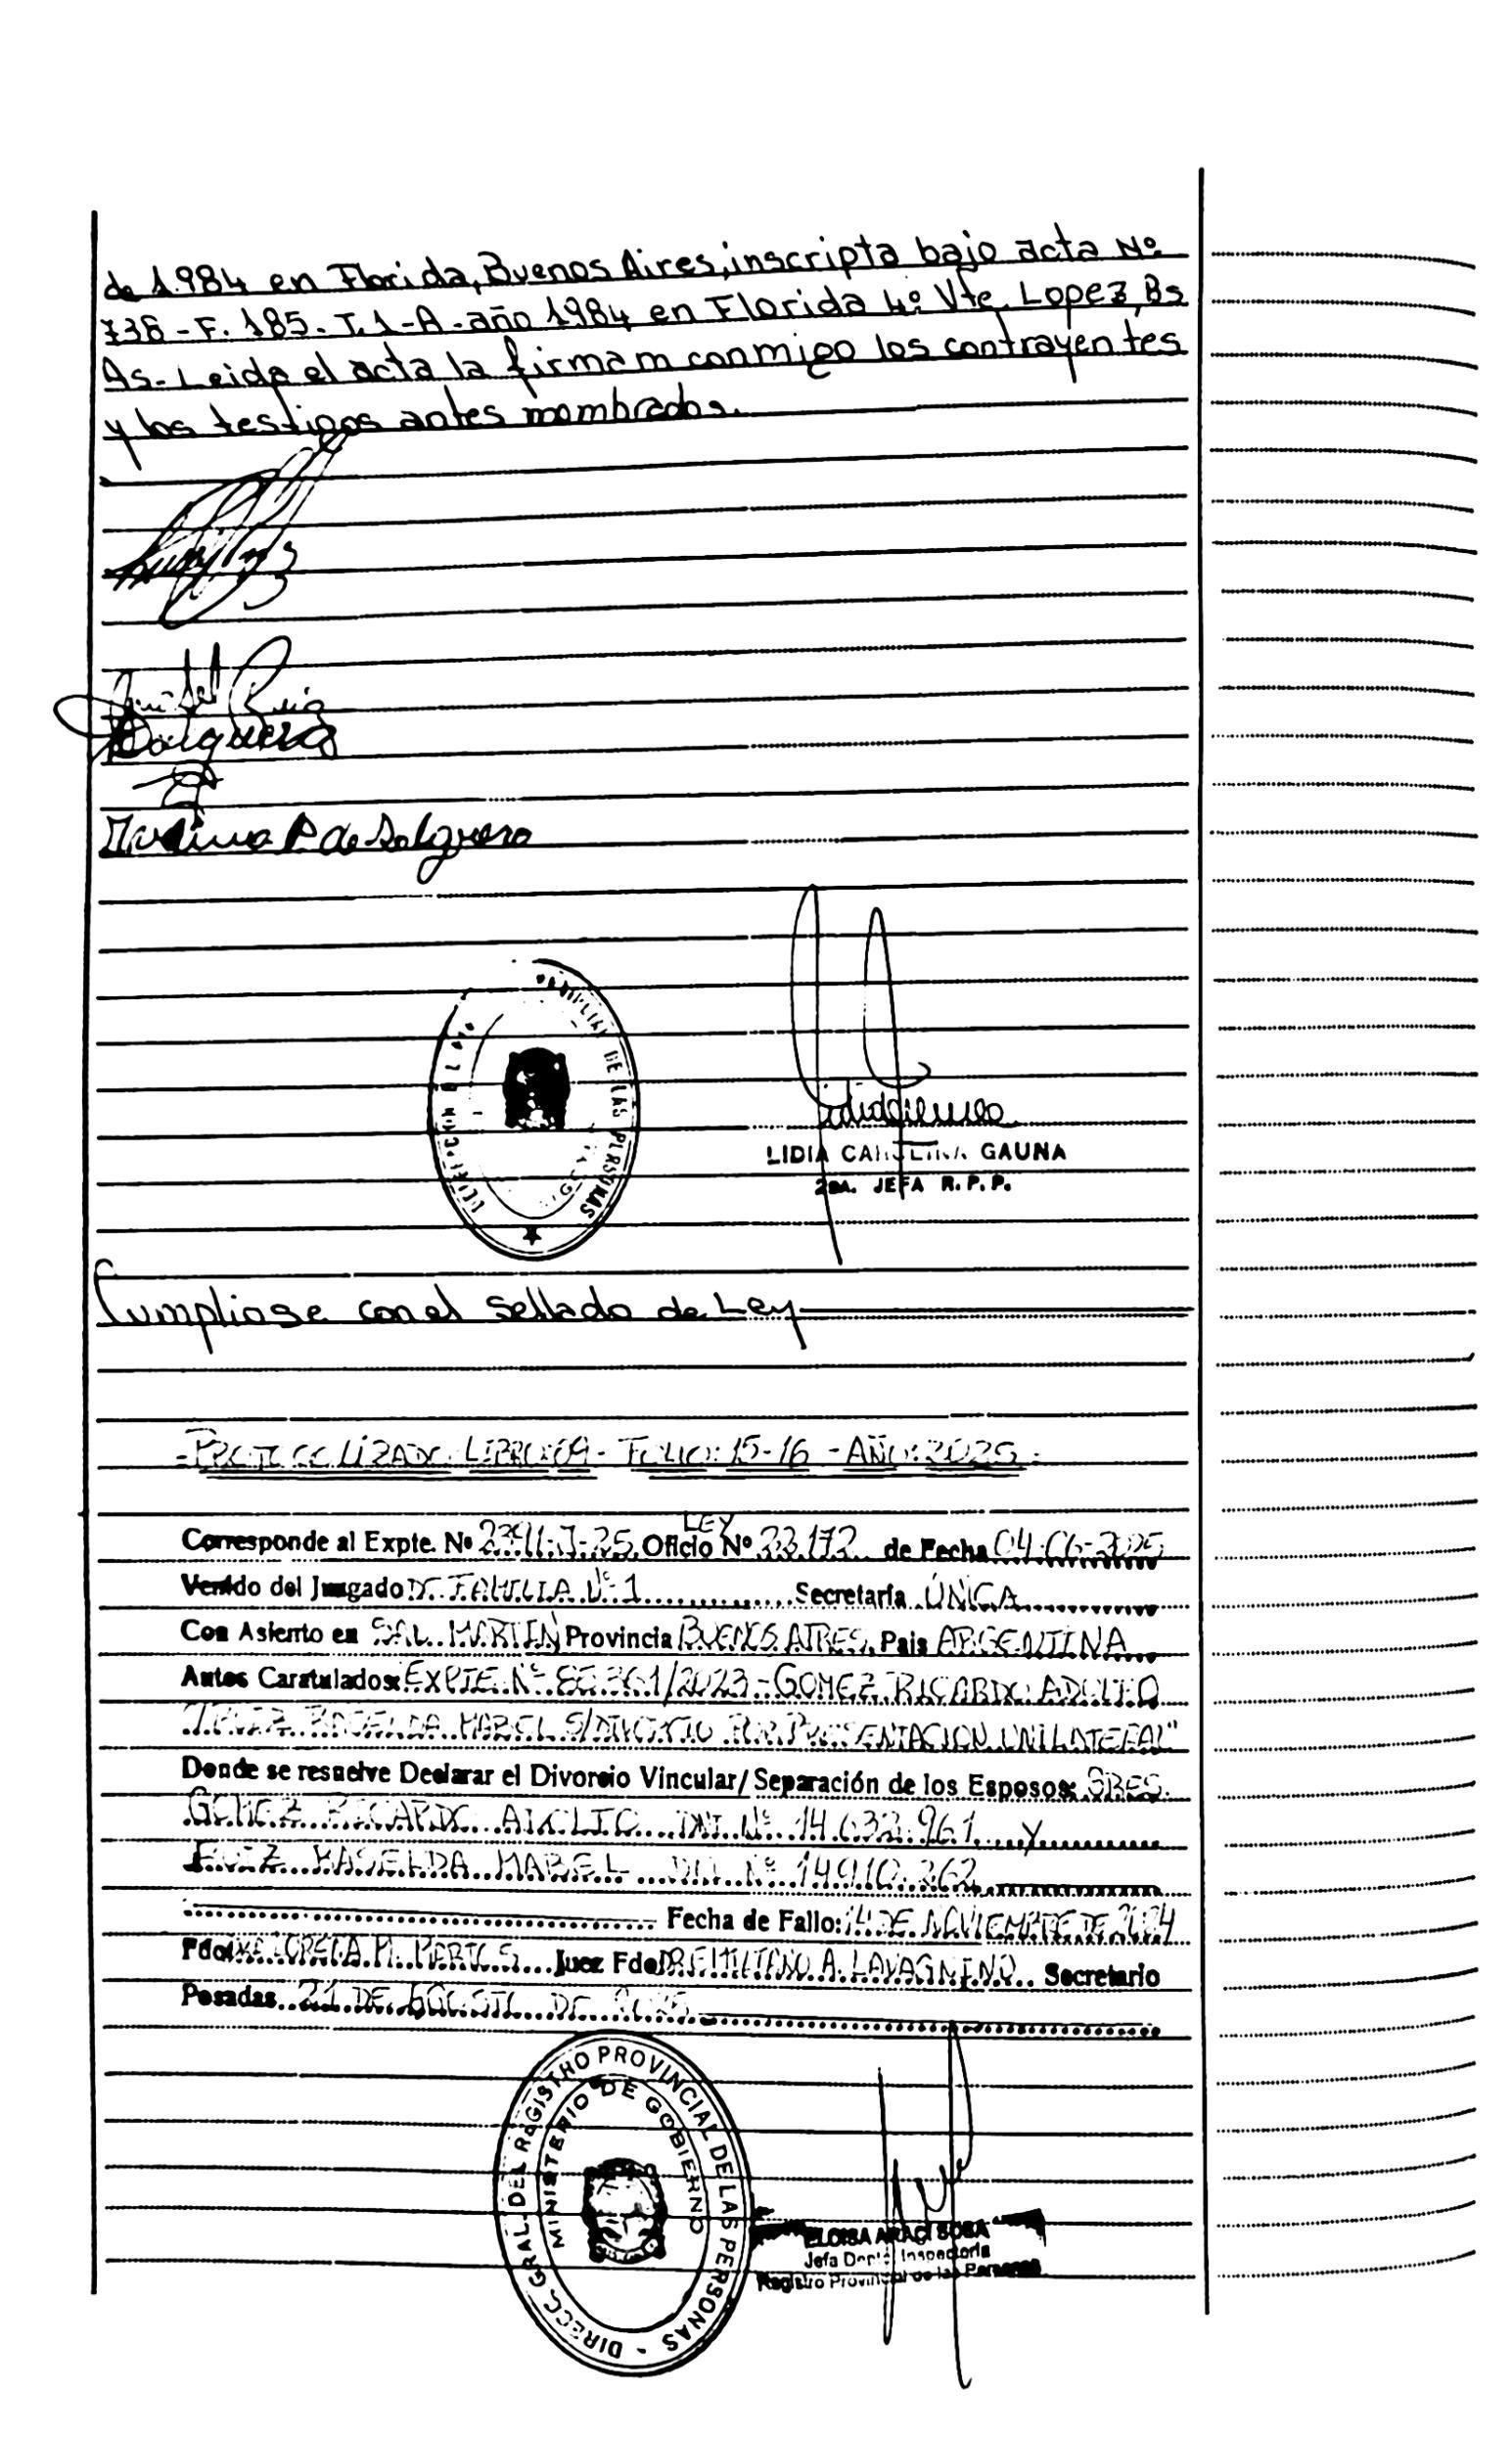 de 1.984 en Florida, Buenos Aires, inscripta bajo acta Nº
736 - F. 185 - T. 1 - A - año 1984 en Florida 4º Vte. Lopez, Bs
As- Leida el acta la firmam conmigo los contrayentes
y los testigos antes mombrados.
Ruiz
Salguero
P de Salguero
DE LAS PERSONAS
LIDIA CAROLINA GAUNA
2DA. JEFA R.P.P.
Cumpliose con el Sellado de Ley
- PROTOCOLIZADO LIBRO: 09 - FOLIO: 15-16 - AÑO: 2025 -
LEY
Corresponde al Expte. Nº 2311-J-25 Oficio Nº 22.172 de Fecha 04-06-2025
Venido del Juzgado DE FAMILIA Nº 1 Secretaría ÚNICA
Con Asiento en SAN MARTIN Provincia BUENOS AIRES, Pais ARGENTINA
Autos Caratulados: EXPTE. Nº 361/2023 - GOMEZ RICARDO ADOLFO
MABEL S/DIVORCIO POR PRESENTACION UNILATERAL"
Donde se resuelve Declarar el Divorcio Vincular/Separación de los Esposos: SRES.
GOMEZ RICARDO ADOLFO DNI Nº 14.632.961 Y
RUIZ MABEL DNI Nº 14.910.262
Fecha de Fallo: 14 DE NOVIEMBRE DE 2024
Fdo: M. Juez Fdo DR EMILIANO A. LAVAGNINO Secretario
Posadas 21 DE AGOSTO DE 2025
DIRECC. GRAL. DEL REGISTRO PROVINCIAL DE LAS PERSONAS -
MINISTERIO DE GOBIERNO
ELOISA ARACI SOSA
Jefa Dpto. Inspectoria
Registro Provincial de las Personas